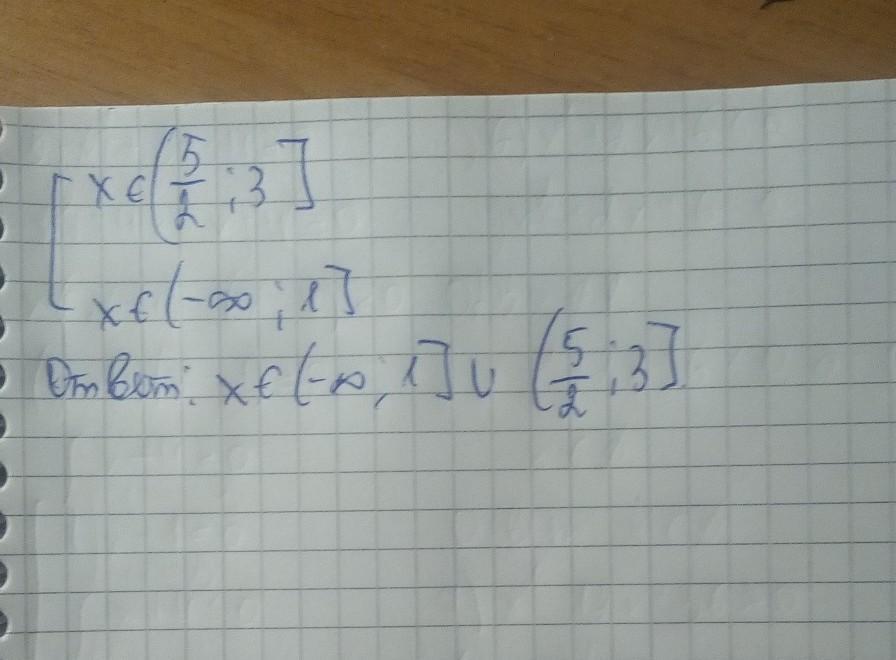 [ x ∈ (5/2 ; 3]
x ∈ (-∞ ; 1]
Ответ: x ∈ (-∞ ; 1] ∪ (5/2 ; 3]